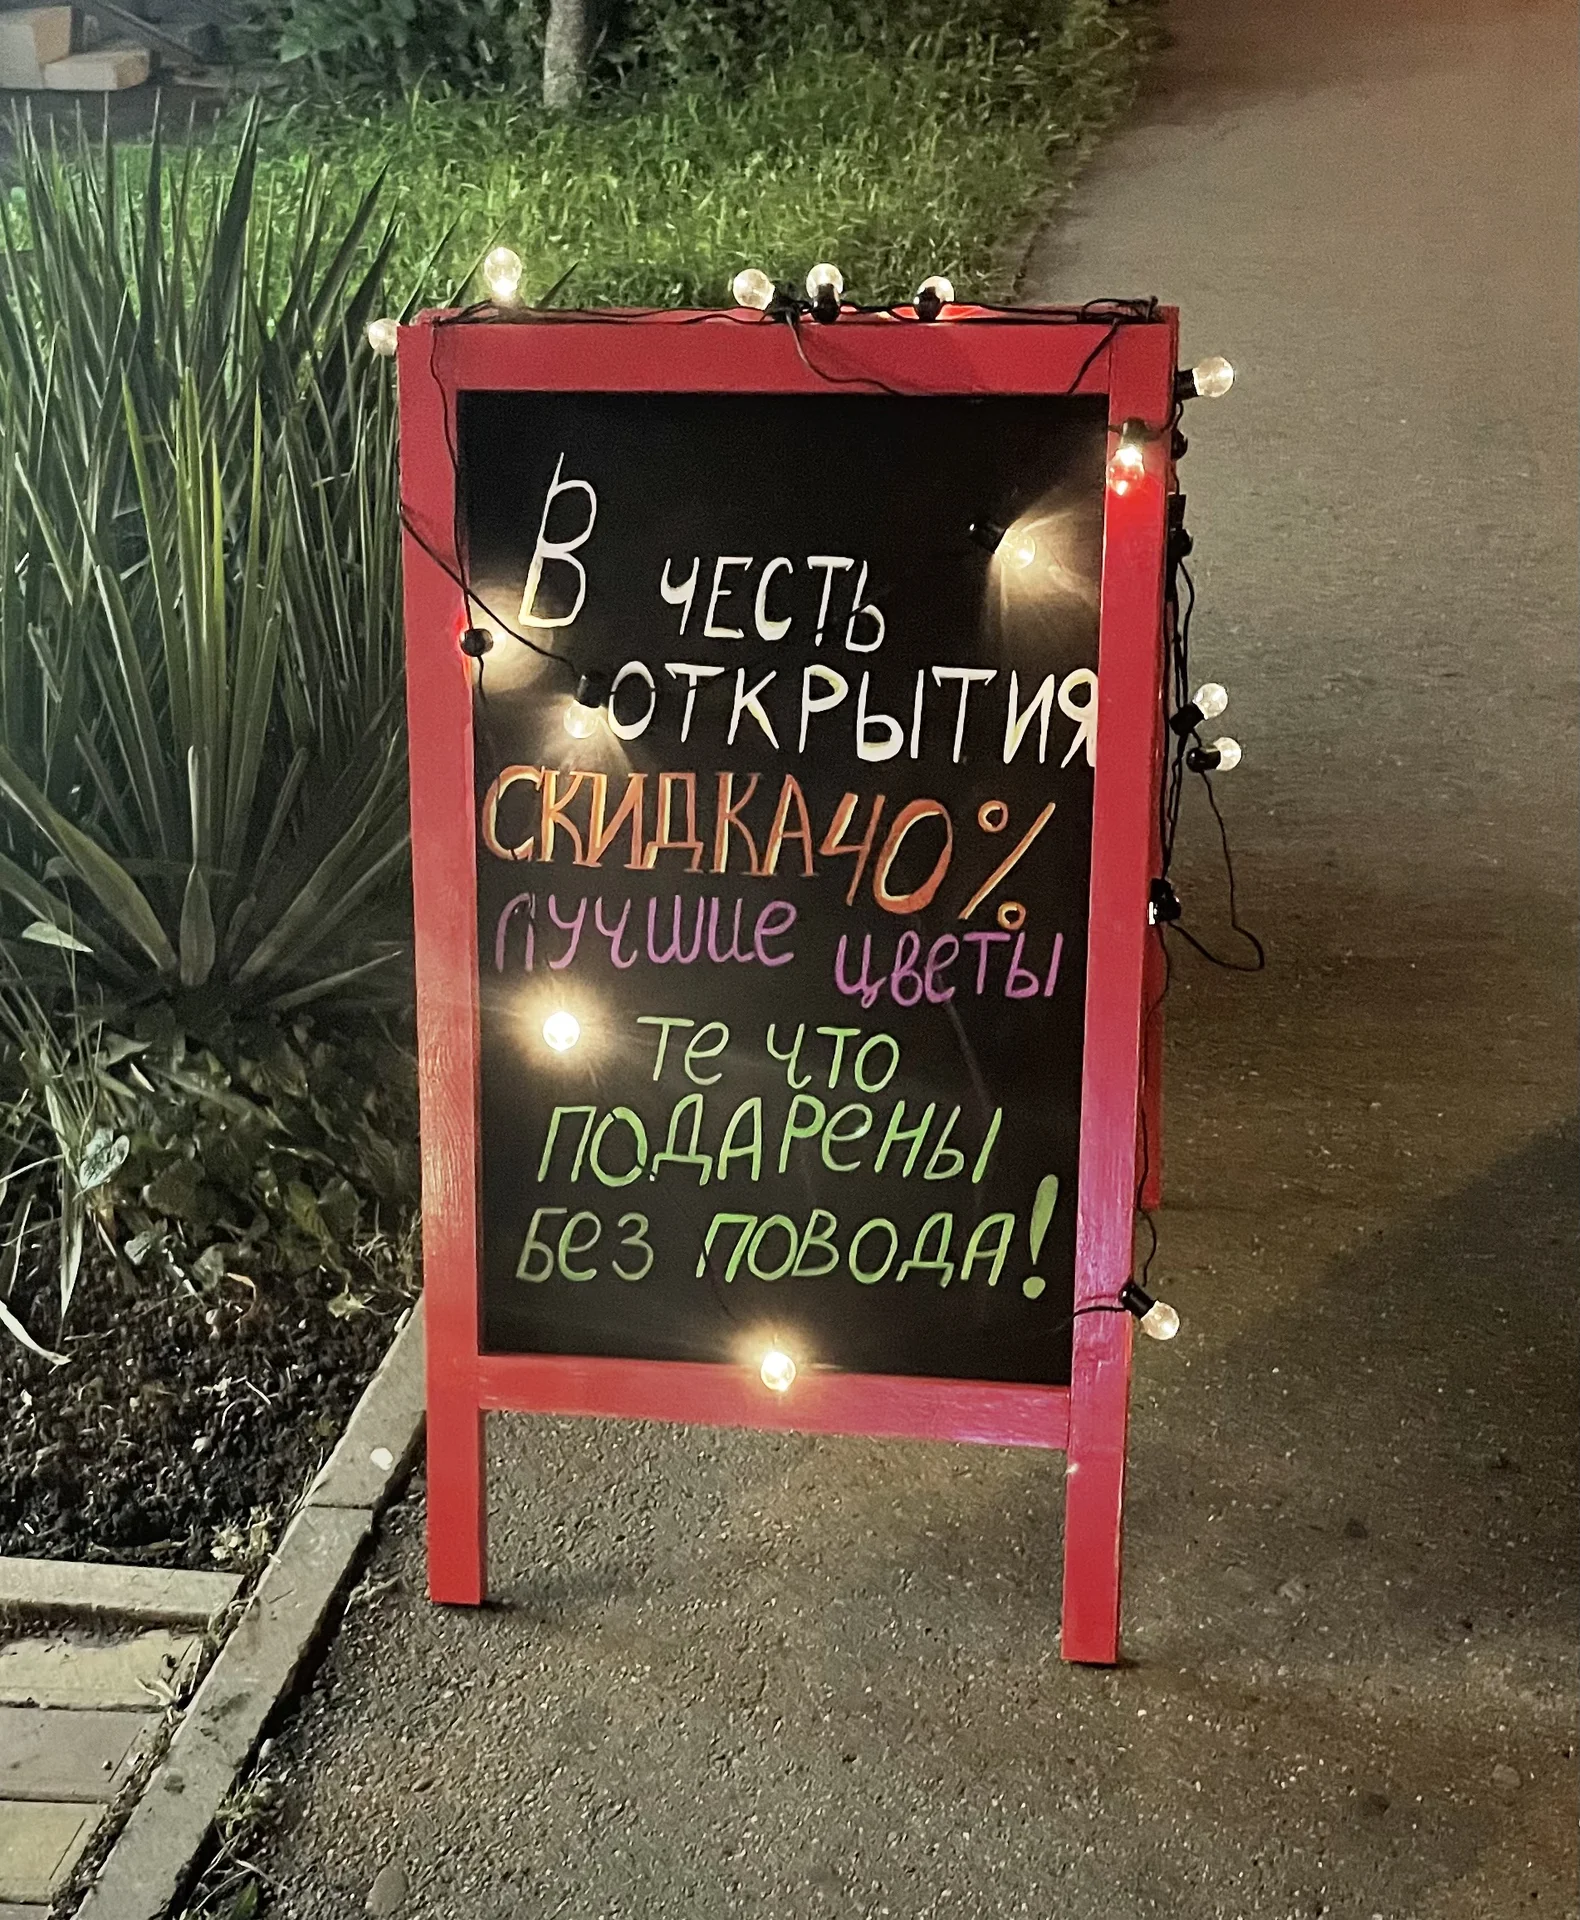 В ЧЕСТЬ
ОТКРЫТИЯ
СКИДКА 40%
ЛУЧШИЕ ЦВЕТЫ
ТЕ ЧТО
ПОДАРЕНЫ
БЕЗ ПОВОДА!